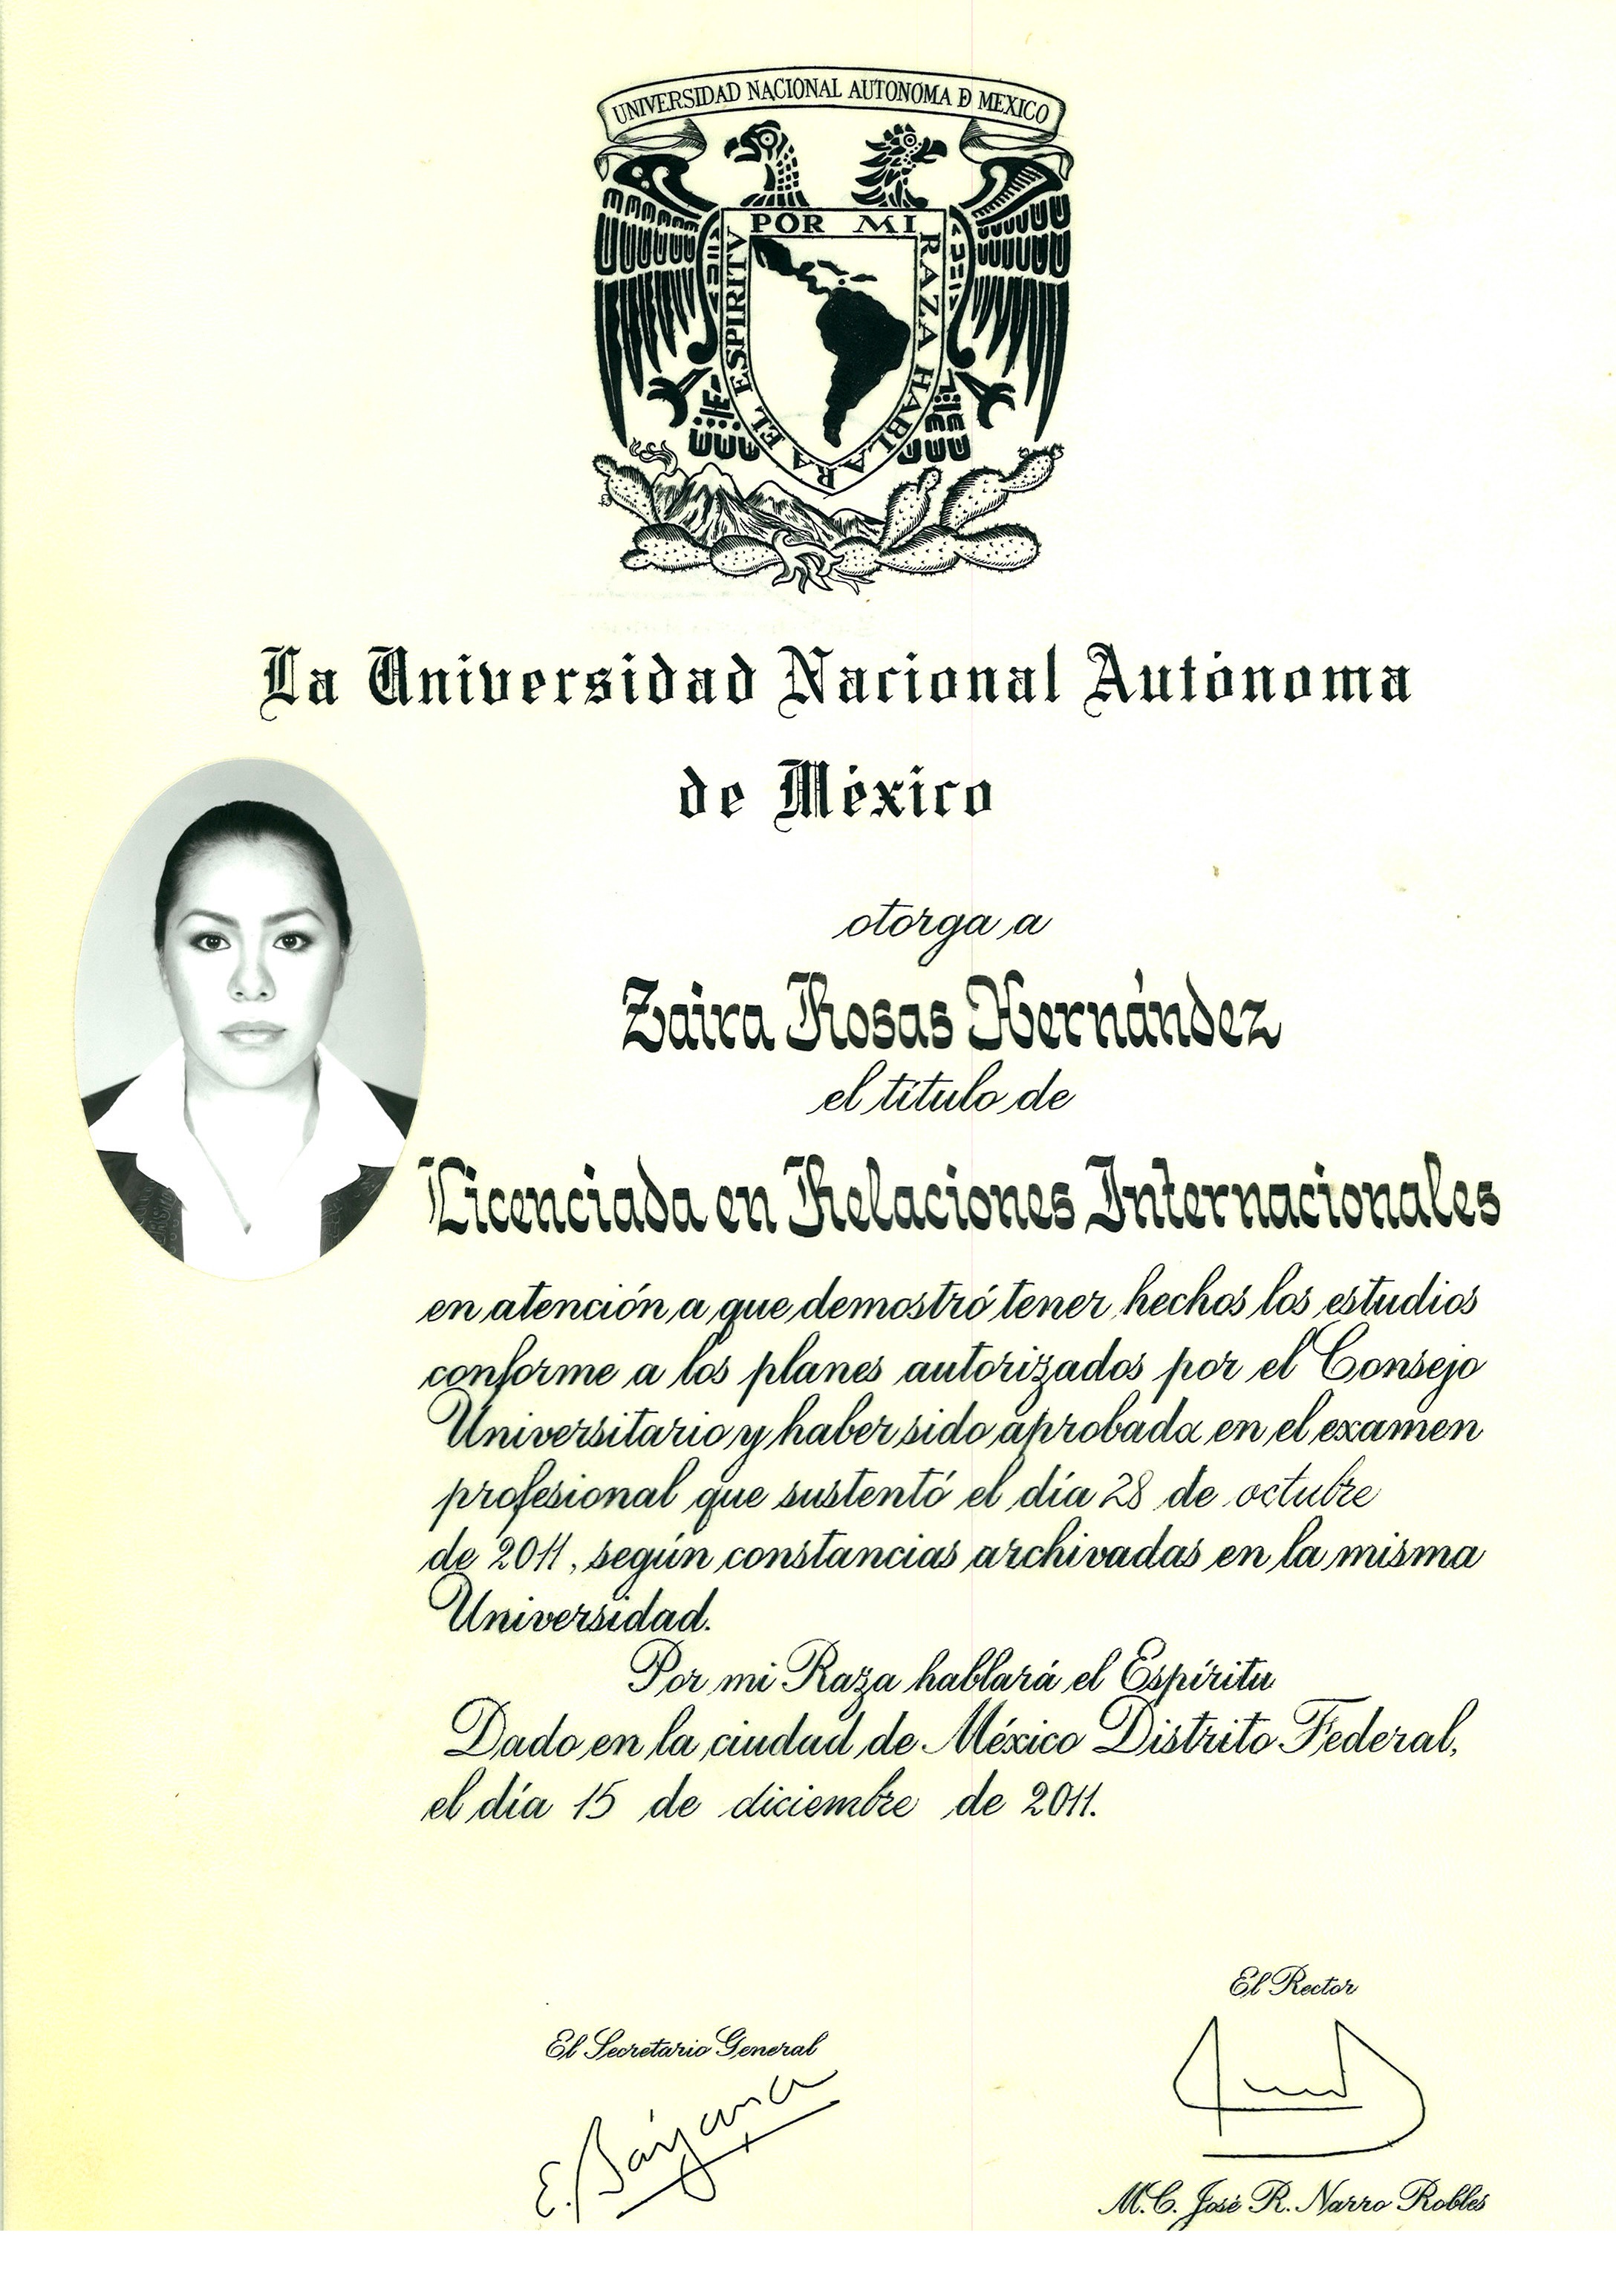 UNIVERSIDAD NACIONAL AUTONOMA D MEXICO
POR MI RAZA HABLARA EL ESPIRITV
La Universidad Nacional Autónoma
de México
otorga a
Zaira Rosas Hernández
el título de
Licenciada en Relaciones Internacionales
en atención a que demostró tener hechos los estudios
conforme a los planes autorizados por el Consejo
Universitario y haber sido aprobada en el examen
profesional que sustentó el día 28 de octubre
de 2011, según constancias archivadas en la misma
Universidad.
Por mi Raza hablará el Espíritu
Dado en la ciudad de México Distrito Federal,
el día 15 de diciembre de 2011.
El Rector
El Secretario General
M.C. José R. Narro Robles